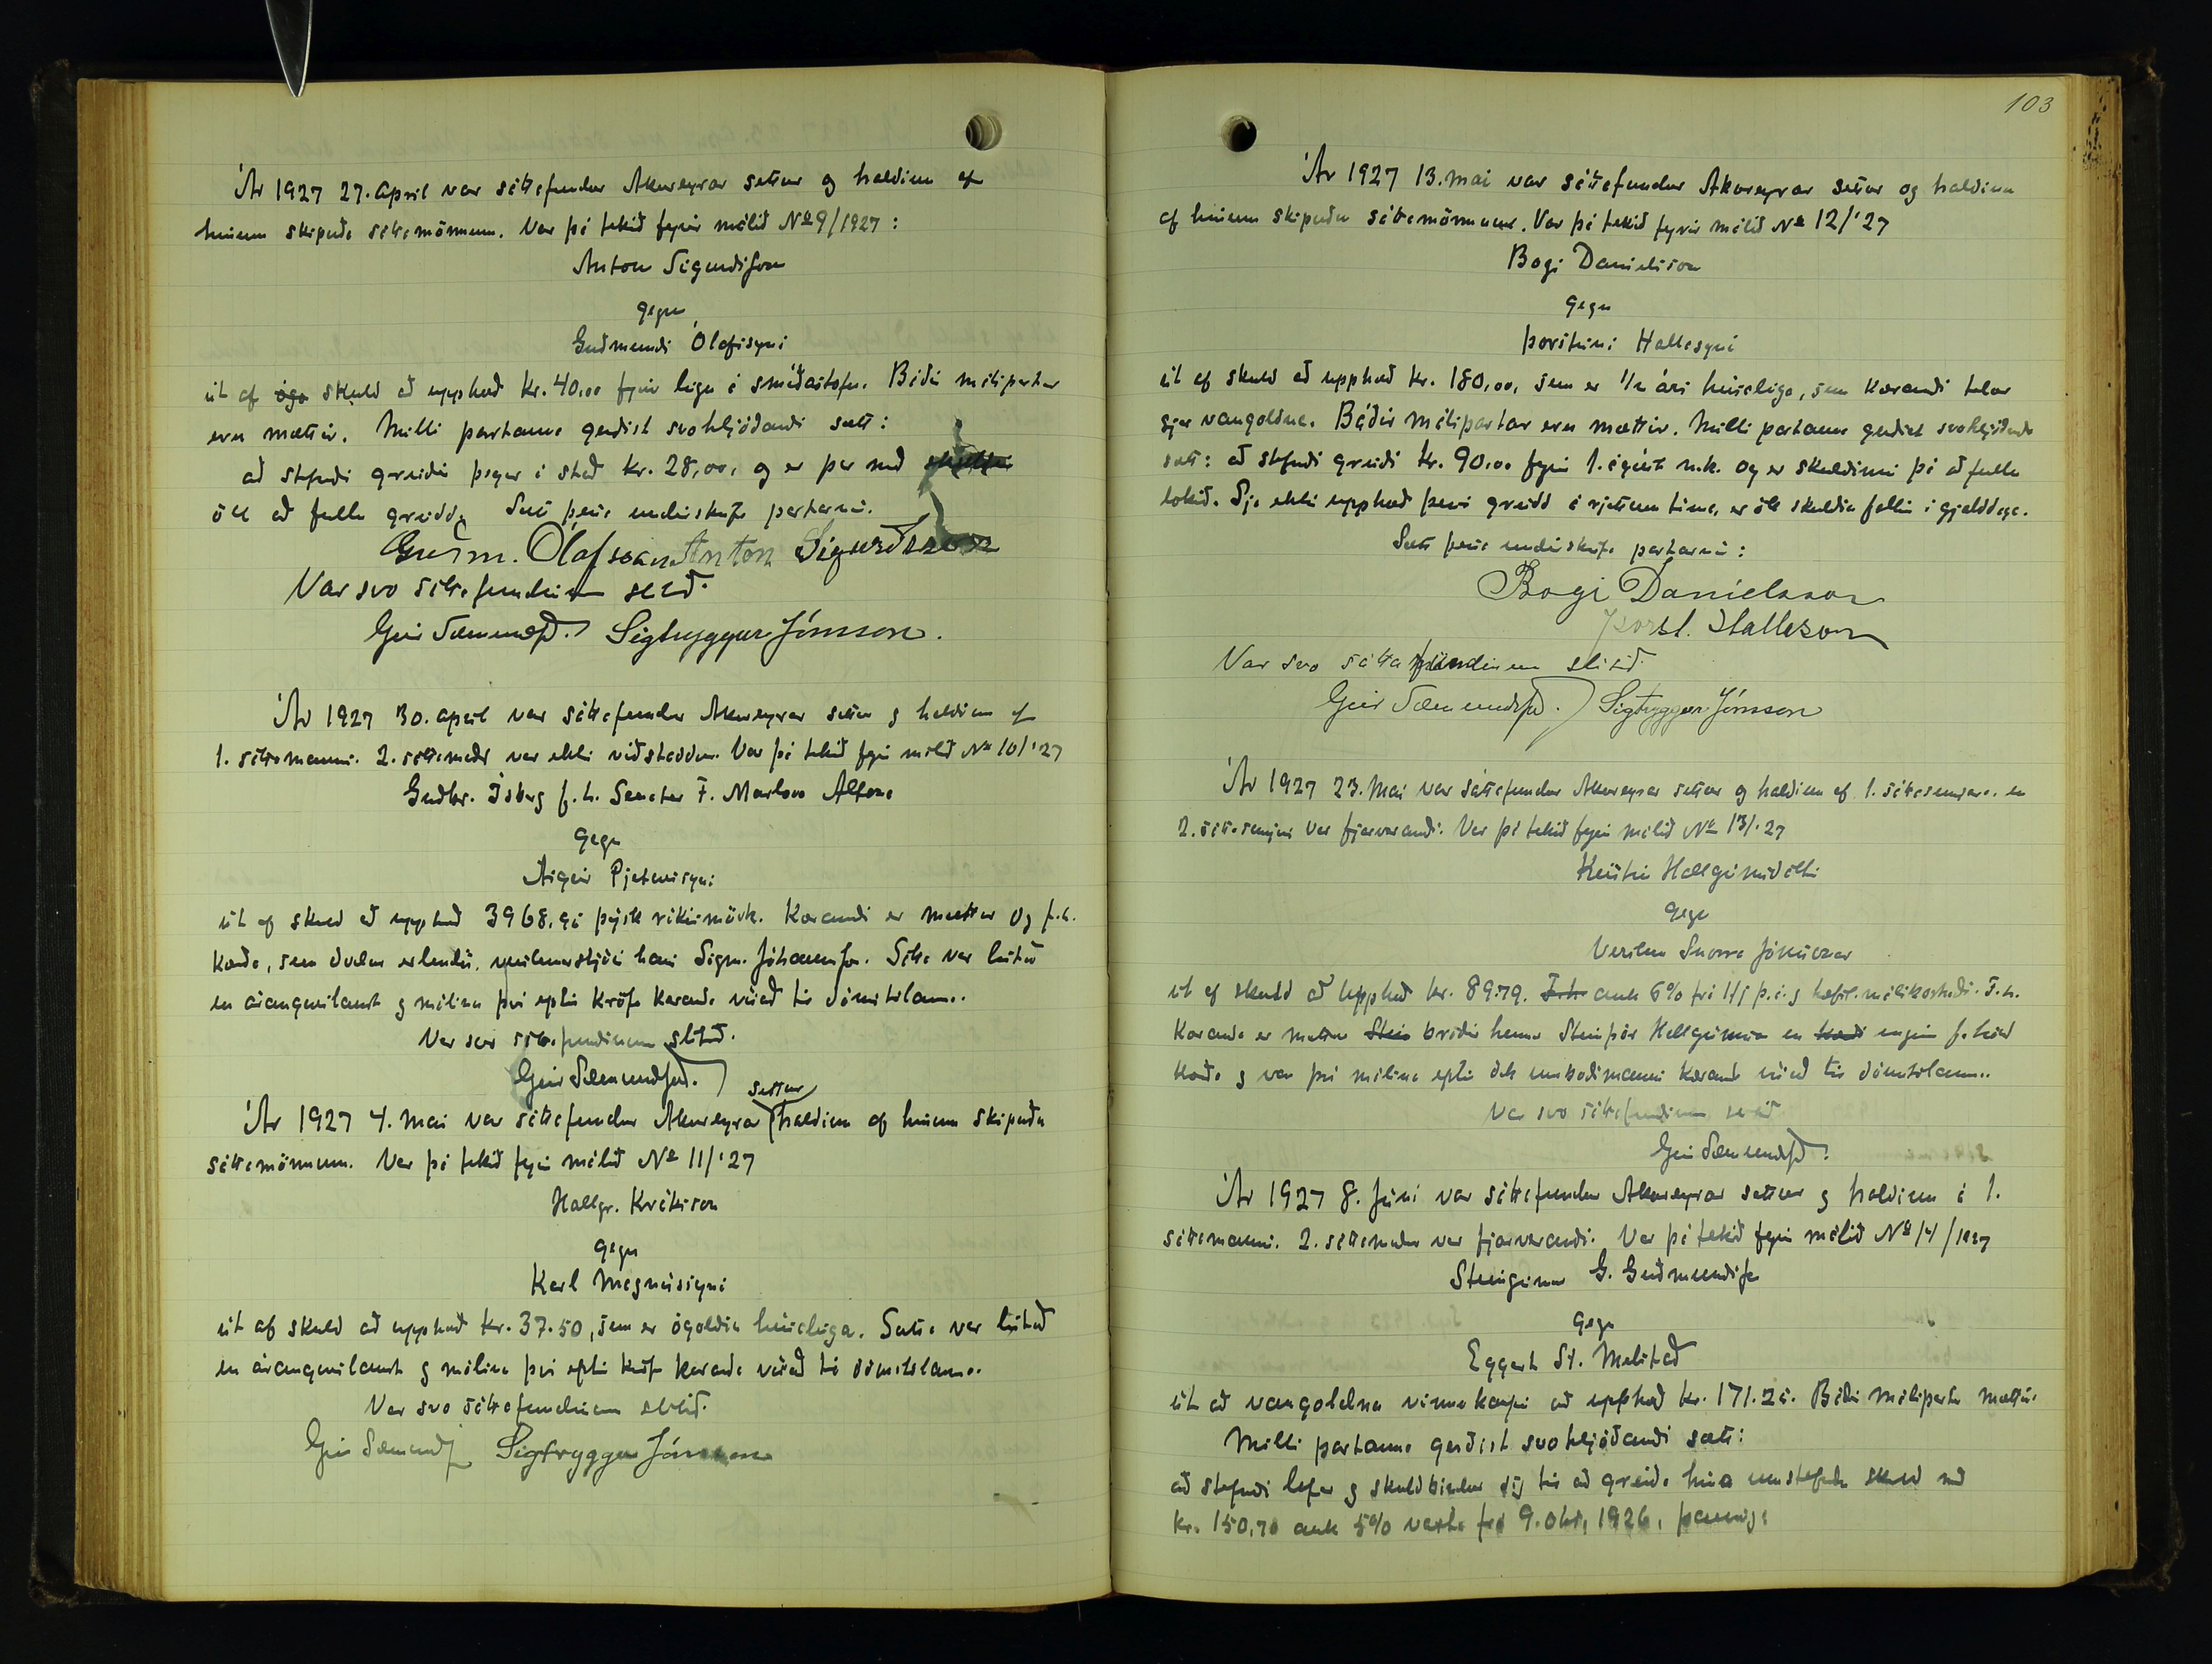 Ár 1927 27. apríl var sáttafundur Akureyrar settur og haldinn af
hinum skipuðu sáttamönnum. Var þá tekið fyrir málið № 9/1927:
Anton Sigurdsson
gegn
Guðmundi Ólafssyni
út af skuld að upphæð kr. 40,00 fyrir leigu á smíðastofu. Báðir málspartar
eru mættir. Milli partanna gerdist svohljóðandi sátt:
að stefndi greiðir þegar í stað kr. 28,00, og er þar með
öll að fullu greidd. Sátt þessa undirskrifa partarnir.
Guðm. Ólafsson Anton Sigurðsson
Var svo sáttafundinum slitið.
Geir Sæmundss. Sigtryggur Jónsson.
Ár 1927 30. apríl var sáttafundur Akureyrar settur og haldinn af
1. sáttamanni. 2. sáttamaðr var ekki viðstaddur. Var þá tekið fyrir málið № 10/'27
Guðbr. Ísberg f.h. F. Marlow Altona
gegn
Ásgeir Pjeturssyni
út af skuld að upphæð 3968,95 þýsk ríkismörk. Kærandi er mættur og f.h.
kærða, sem dvelur erlendis, umboðsmaður hans Sigm. Jóhannss. Sátta var leitað
en árangurslaust og málinu því eptir kröfu kæranda vísað til dómstólanna.
Var svo sáttafundinum slitið.
Geir Sæmundss.
settur
Ár 1927 4. mai var sáttafundur Akureyrar haldinn af hinum skipuðu
sáttamönnum. Var þá tekið fyrir málið № 11/'27
Hallgr. Kristinsson
gegn
Karl Magnússyni
út af skuld að upphæð kr. 37.50, sem er ógoldin húsaleiga. Sátta var leitað
en árangurslaust og málinu því eptir kröfu kæranda vísað til dómstólanna.
Var svo sáttafundinum slitið.
Geir Sæmundss Sigtryggur Jónsson
103
Ár 1927 13. mai var sáttafundur Akureyrar settur og haldinn
af hinum skipuðu sáttamönnum. Var þá tekið fyrir málið № 12/'27
Bogi Danielsson
gegn
Þorsteini Hallssyni
út af skuld að upphæð kr. 180,00, sem er 1/2 árs húsaleiga, sem kærandi telur
sjer vangoldna. Báðir málspartar eru mættir. Milli partanna gerdist svohljóðandi
sátt: að stefndi greiði kr. 90.00 fyrir 1. ágúst n.k. og er skuldinni þá að fullu
lokið. Sje ekki upphæð þessi greidd á rjettum tíma, er öll skuldin fallin í gjalddaga.
Sátt þessa undirskrifa partarnir:
Bogi Danielsson
Þorst. Hallsson
Var svo sáttafundinum slitið.
Geir Sæmundss. Sigtryggur Jónsson
Ár 1927 23. mai var sáttafundur Akureyrar settur og haldinn af 1. sáttasemjara, en
2. sáttasemjari var fjarverandi. Var þá tekið fyrir málið № 13/'27
Kristín Hallgrímsdóttir
gegn
Verslun Snorra Jónssonar
út af skuld að upphæð kr. 89.79. auk 6% frá 1/1 þ.á. og málskostnaði. F.h.
kæranda er mættur bróðir hennar Steinþór Hallgrímsson en enginn f. hönd
kærða og var því málinu eptir ósk umboðsmanni kæranda vísað til dómstólanna.
Var svo sáttafundinum slitið
Geir Sæmundss.
Ár 1927 8. júní var sáttafundur Akureyrar settur og haldinn á 1.
sáttamanni. 2. sáttamaður var fjarverandi. Var þá tekið fyrir málið № 14/1927
Steingrímur G. Guðmundss
gegn
Eggert St. Melstað
út að vangoldnu vinnukaupi að upphæð kr. 171.25. Báðir málspartar mættir.
Milli partanna gerdist svohljóðandi sátt:
að stefndi lofar og skuldbindur sig til að greiða hina umstefndu skuld með
kr. 150,70 auk 5% vaxta frá 9. okt. 1926, þannig: